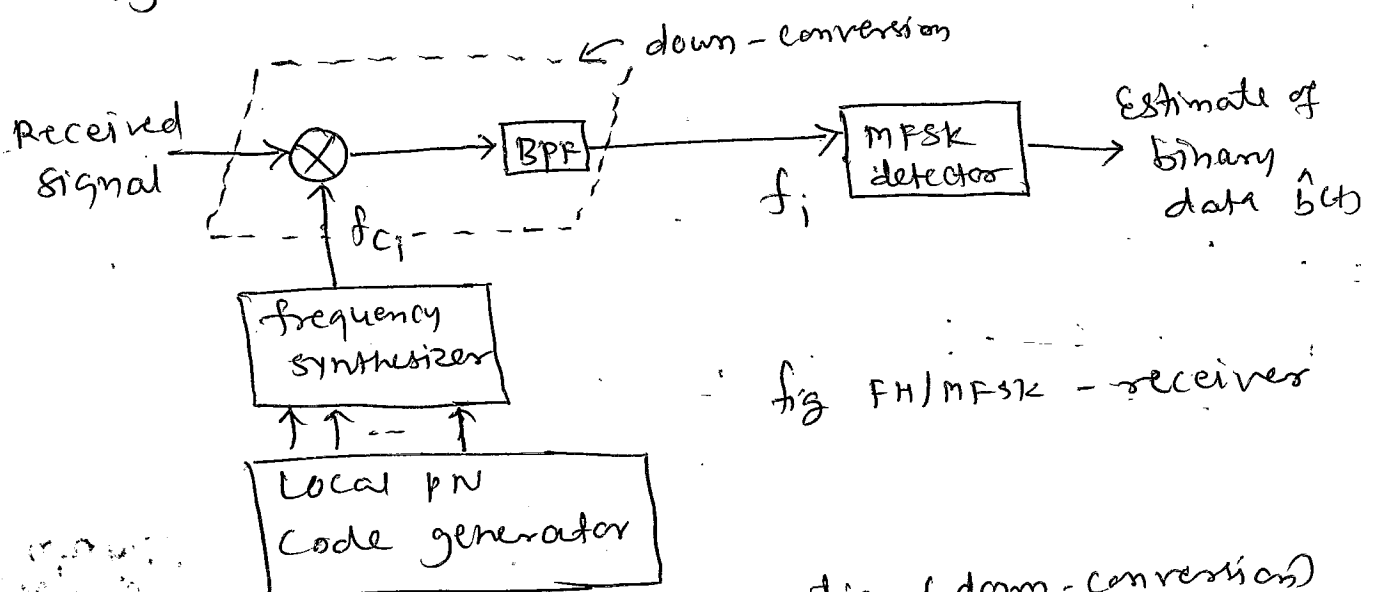 down-conversion
Received
Signal
BPF
MFSK
detector
Estimate of
binary
data b̂(t)
fi
fci
frequency
synthesizer
fig FH/MFSK - receiver
Local PN
Code generator
(down-conversion)